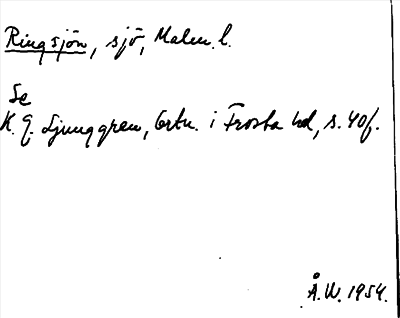 Ringsjön, sjö, Malm. l.
Se
K. G. Ljunggren, Ortn. i Frosta hd, s. 40f.
Å. W. 1954.